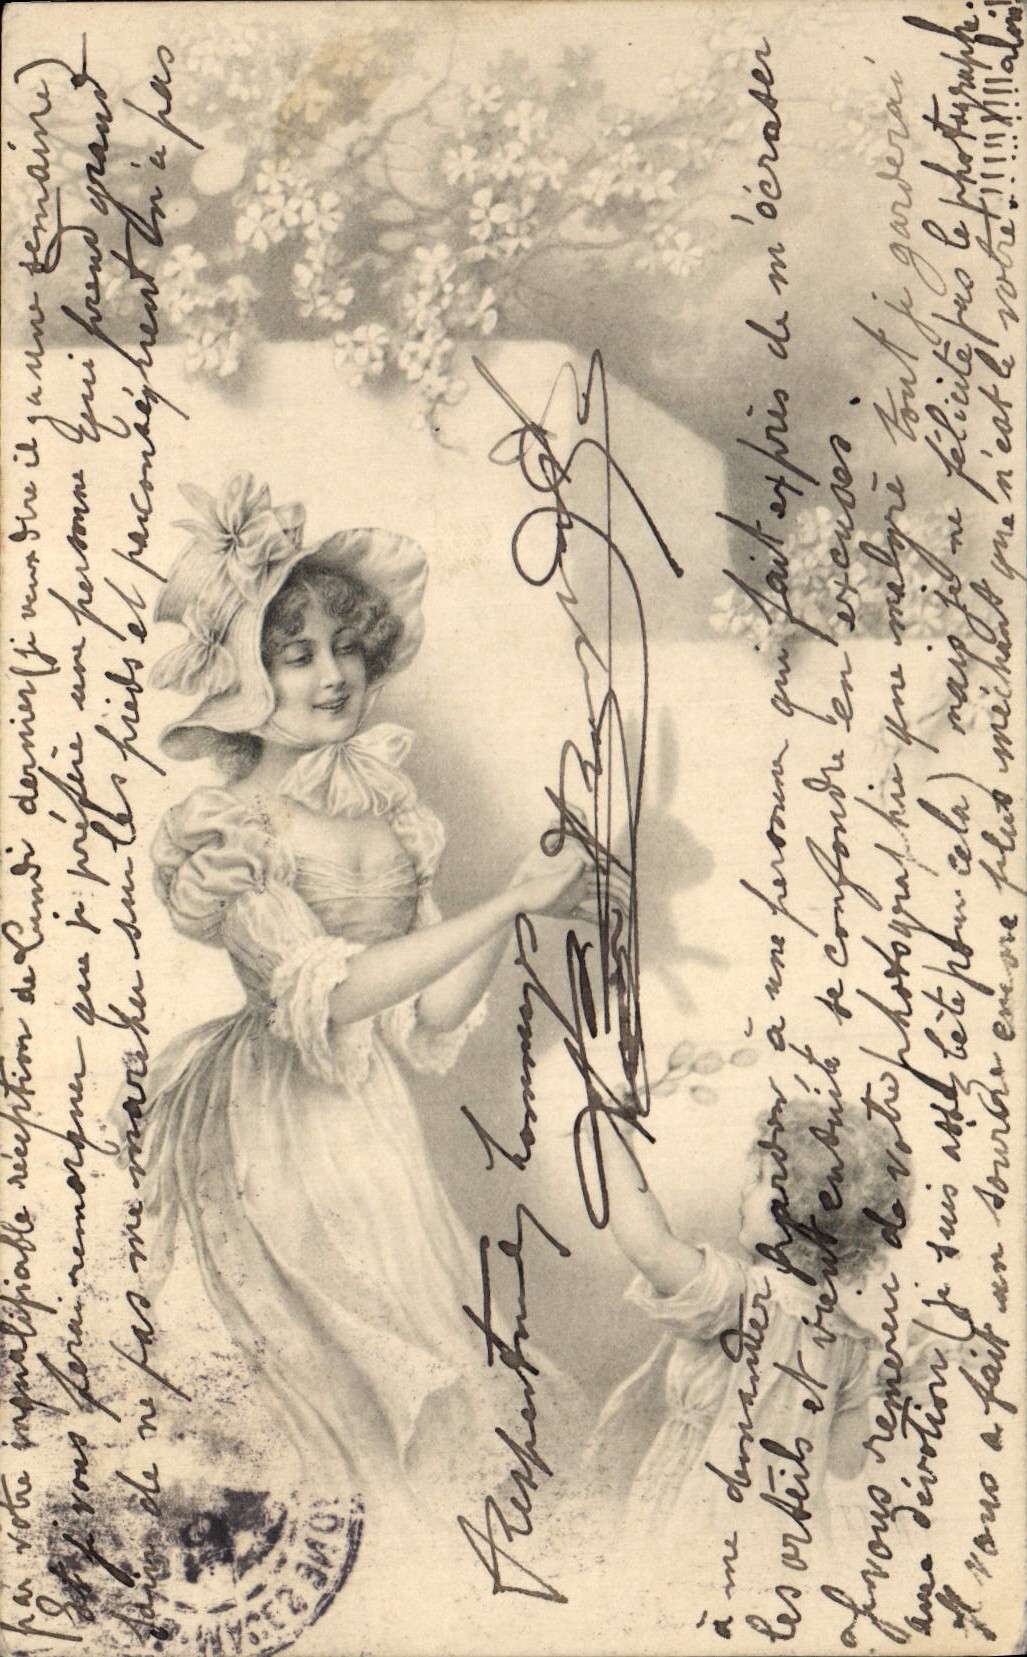 par votre inqualifiable réception de Lundi dernier (je veux dire il y a une semaine)
Et je vous ferai remarquer que je préfère une personne qui prend grand
soin de ne pas me marcher sur les pieds et par conséquent n'a pas
Respectueux hommages
à me demander pardon à une personne qui fait exprès de m'écraser
les orteils et vient ensuite se confondre en excuses.
Je vous remercie de votre photographie que malgré tout je garderai
avec dévotion (je suis assez bête pour cela) mais je ne félicite pas le photographe.
Il vous a fait un sourire encore plus méchant que n'est le vôtre!!!!!!!! alors!